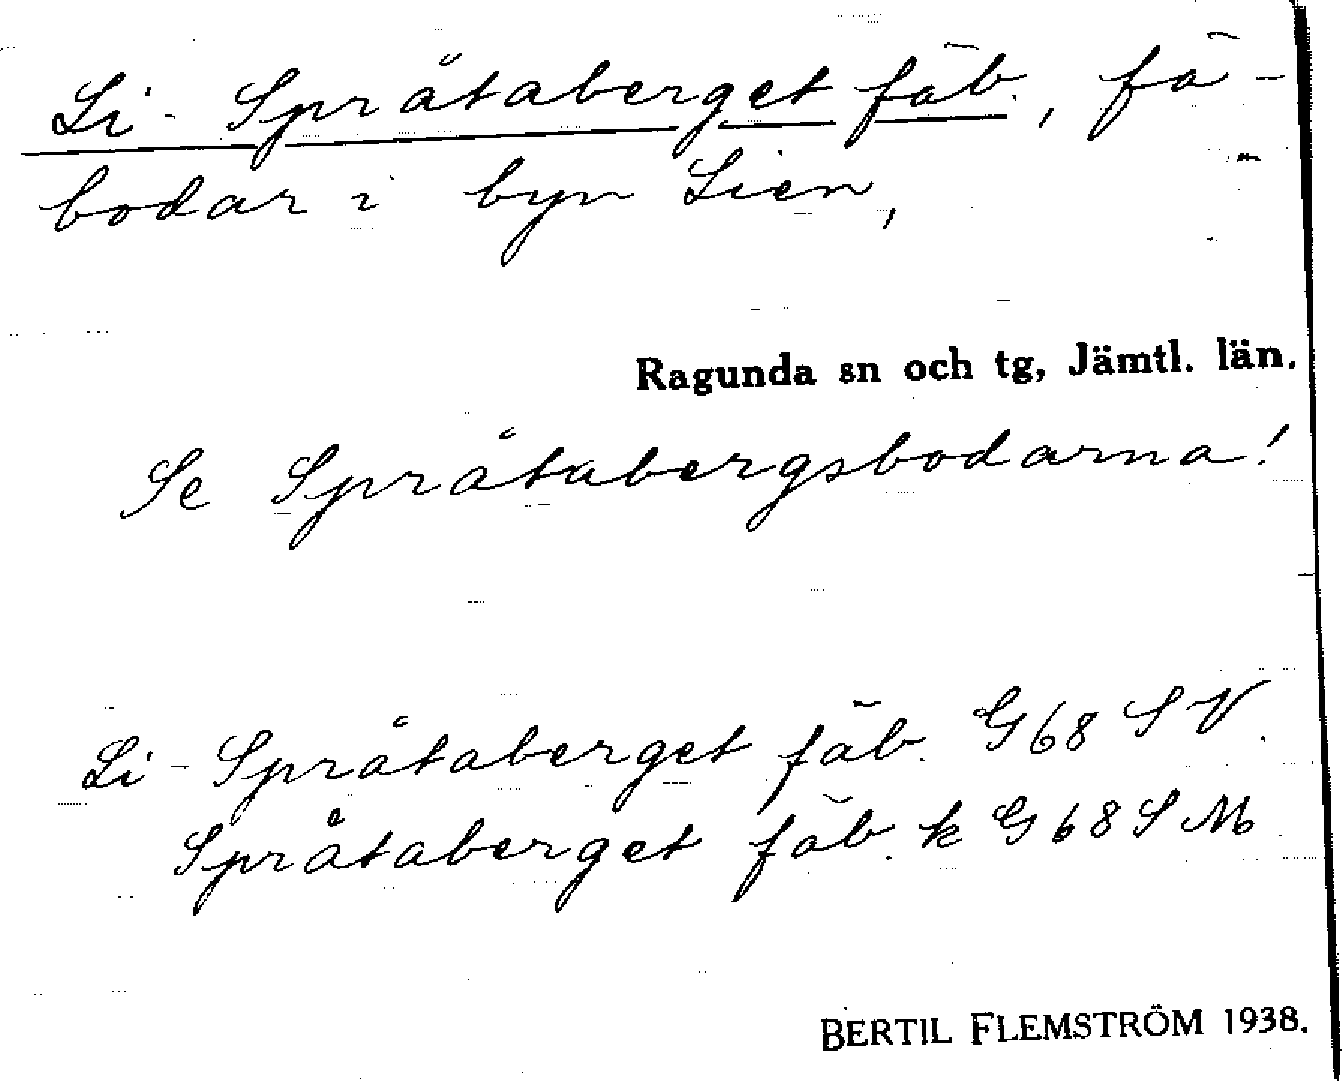 Li-Språtaberget fäb., fä-
bodar i byn Lien,
Ragunda sn och tg, Jämtl. län.
Se Språtabergsbodarna!
Li-Språtaberget fäb. G68 SV.
Språtaberget fäb. k G68 SM
BERTIL FLEMSTRÖM 1938.